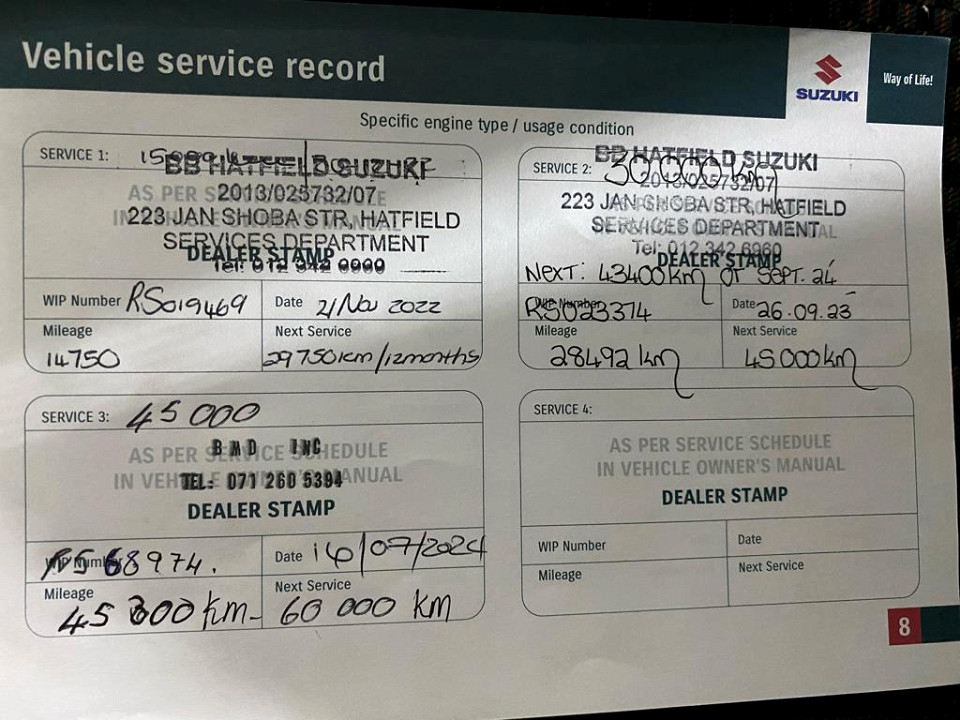 Vehicle service record
SUZUKI
Way of Life!
Specific engine type / usage condition
SERVICE 1:
BB HATFIELD SUZUKI
2013/025732/07
223 JAN SHOBA STR, HATFIELD
SERVICES DEPARTMENT
DEALER STAMP
Tel: 012 342 6960
WIP Number RS019469
Date 21/Nov 2022
Mileage
14750
Next Service
29750km/12months
SERVICE 2: 30000 km
BB HATFIELD SUZUKI
2013/025732/07
223 JAN SHOBA STR, HATFIELD
SERVICES DEPARTMENT
Tel: 012 342 6960
DEALER STAMP
NEXT: 43400km or SEPT. 24
WIP Number RS023374
Date 26.09.23
Mileage
28492 km
Next Service
45000km
SERVICE 3: 45 000
AS PER SERVICE SCHEDULE
BMD INC
IN VEHICLE OWNER'S MANUAL
TEL: 071 260 5394
DEALER STAMP
WIP Number 68974.
Date 16/07/2024
Mileage
45 300 km
Next Service
60 000 km
SERVICE 4:
AS PER SERVICE SCHEDULE
IN VEHICLE OWNER'S MANUAL
DEALER STAMP
WIP Number
Date
Mileage
Next Service
8